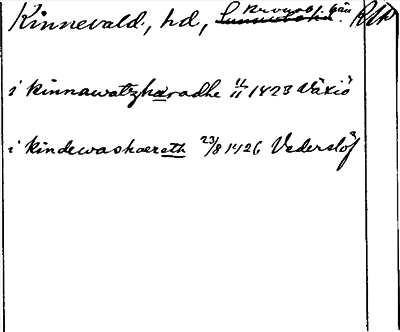 Kinnevald, hd, Kronob. län RAp
i kinnawatzhæradhe 11/11 1423 Växiö
i kindewashæræth 23/8 1426 Vederslöf